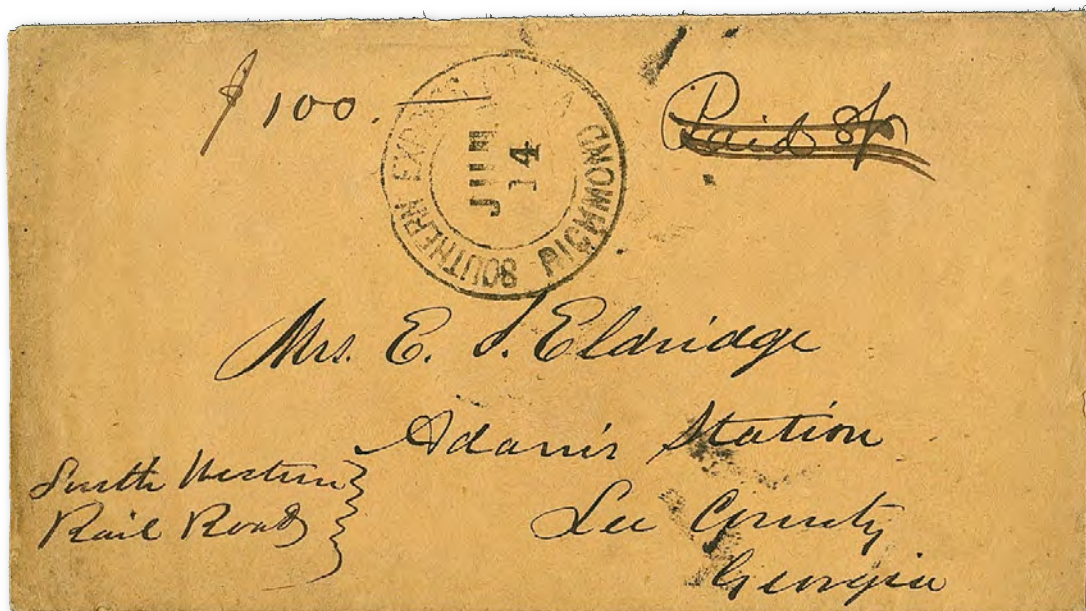 $ 100.
SOUTHERN EXPRESS CO. VA.
RICHMOND
JUN
14
Paid
Mrs. E. J. Eldridge
Adams Station
Lee County
Georgia
South Western
Rail Road